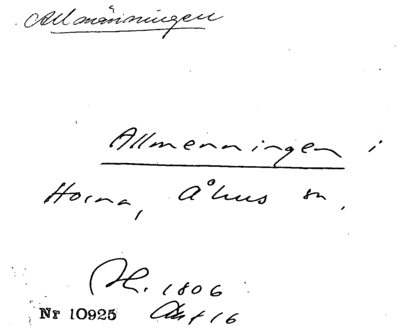 Allmänningen
Allmenningen i
Horna, Åhus sn.
H. 1806
Nr 10925 Akt 16